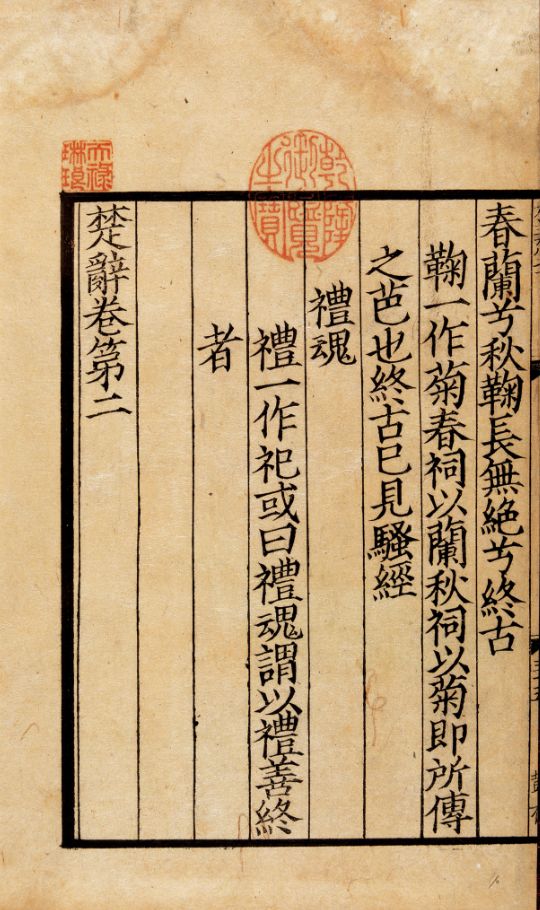 春蘭兮秋鞠長無絶兮終古
鞠一作菊春祠以蘭秋祠以菊即所傳
之芭也終古已見騷經
禮魂
禮一作祀或曰禮魂謂以禮善終
者
楚辭卷第二
乾隆御覽之寶
天祿琳琅